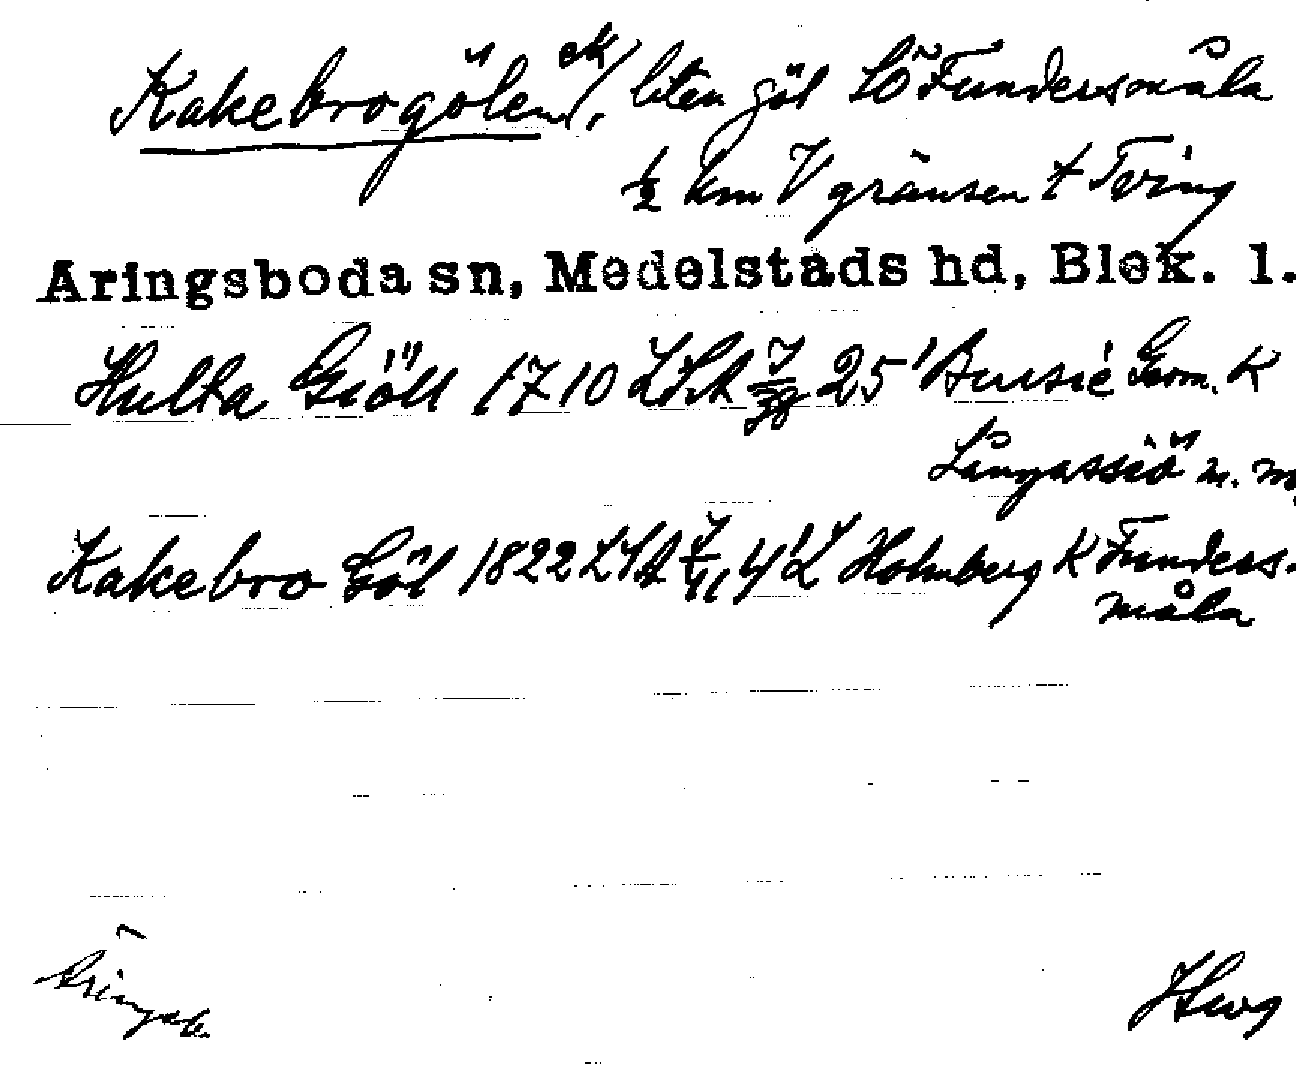 Kakebrogölen ek/, liten göl SÖ Fundersmåla
½ km V gränsen t Tving
Aringsboda sn, Medelstads hd, Blek. l.
Hulta Giöll 1710 LSA 25' Bursie Geom. K
Långassiö m. m.
Kakebro Göl 1822 LSA J/11 4' L Holmberg K Funders-
måla
Åringsb.